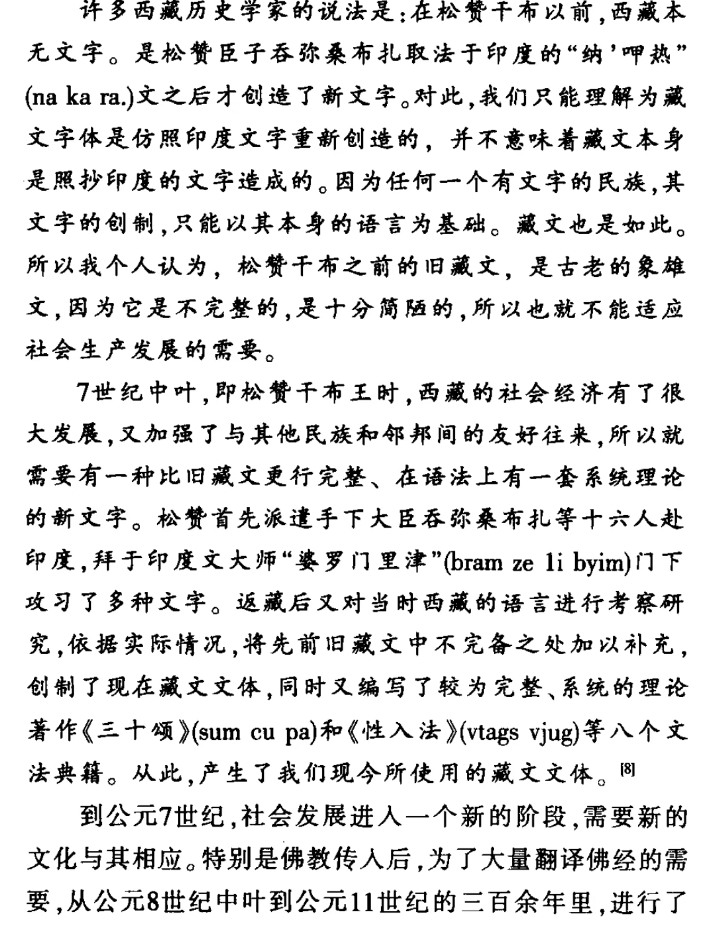 许多西藏历史学家的说法是:在松赞干布以前,西藏本
无文字。是松赞臣子吞弥桑布扎取法于印度的“纳’呷热”
(na ka ra.)文之后才创造了新文字。对此,我们只能理解为藏
文字体是仿照印度文字重新创造的，并不意味着藏文本身
是照抄印度的文字造成的。因为任何一个有文字的民族,其
文字的创制,只能以其本身的语言为基础。藏文也是如此。
所以我个人认为，松赞干布之前的旧藏文，是古老的象雄
文,因为它是不完整的,是十分简陋的,所以也就不能适应
社会生产发展的需要。
7世纪中叶,即松赞干布王时,西藏的社会经济有了很
大发展,又加强了与其他民族和邻邦间的友好往来,所以就
需要有一种比旧藏文更行完整、在语法上有一套系统理论
的新文字。松赞首先派遣手下大臣吞弥桑布扎等十六人赴
印度,拜于印度文大师“婆罗门里津”(bram ze li byim)门下
攻习了多种文字。返藏后又对当时西藏的语言进行考察研
究,依据实际情况,将先前旧藏文中不完备之处加以补充,
创制了现在藏文文体,同时又编写了较为完整、系统的理论
著作《三十颂》(sum cu pa)和《性入法》(vtags vjug)等八个文
法典籍。从此,产生了我们现今所使用的藏文文体。[8]
到公元7世纪,社会发展进入一个新的阶段,需要新的
文化与其相应。特别是佛教传入后,为了大量翻译佛经的需
要,从公元8世纪中叶到公元11世纪的三百余年里,进行了